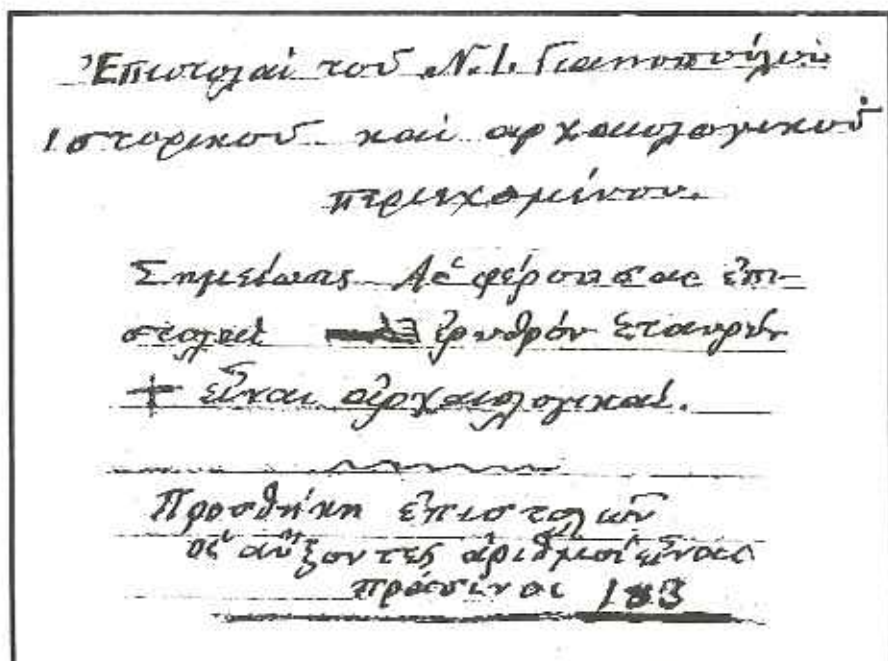 Ἐπιστολαὶ τοῦ Ν. Ι. Γιαννοπούλου
Ιστορικοῦ καὶ αρχαιολογικοῦ
περιεχομένου.
Σημείωσις Αἱ φέρουσαι ἐπι-
στολαὶ ἐρυθρόν Σταυρόν
+ εἶναι ἀρχαιολογικαί.
Προσθήκη ἐπιστολῶν
οἱ αὔξοντες ἀριθμοὶ εἶναι
183